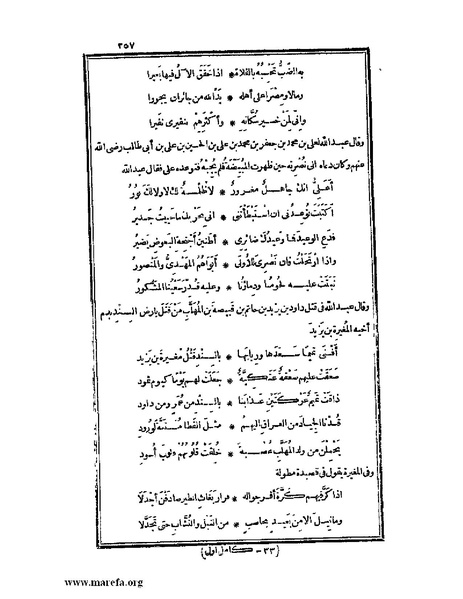 ٢٥٧
به الضب تحسبه بالفلاة * اذا خفق الآل فيها بعيرا
ومالا ومصرا على أهله * يد الله من جائر أن يجورا
وانى لمن خير سكانه * وأكثرهم بنفيرى نفيرا
وقال عبد الله لعلى بن محمد بن جعفر بن محمد بن على بن الحسين بن على بن أبى طالب رضى الله
عنهم وكان دعاه الى نصرته حين ظهرت المبيضة فلم يجبه فتوعده على فقال عبد الله
أعلى انك جاهل مغرور * لا ظلمة لك لا ولا لك نور
أكتبت توعدنى ان استبطأتنى * انى بحربك ما حييت جدير
فدع الوعيد فما وعيدك ضائرى * أطنين أجنحة البعوض يضير
واذا ارتحلت فان نصرى للأولى * أبواهم المهدى والمنصور
نبتت عليه لحومنا ودماؤنا * وعليه قدر سعينا المشكور
وقال عبد الله فى قتل داود بن يزيد بن حاتم بن قبيصة بن المهلب من قتل بأرض السند بدم
أخيه المغيرة بن يزيد
أفنى تميما سعدها وربابها * بالسند قتل مغيرة بن يزيد
صعقت عليهم صعقة عتكية * جعلت لهم يوما كيوم ثمود
ذاقت تميم عركتين عذابنا * بالسند من عمر ومن داود
قدنا الجياد من العراق اليهم * مثل القطا مستنة لورود
يحملن من ولد المهلب عصبة * خلقت قلوبهم قلوب أسود
وفى المغيرة يقول فى قصيدة مطولة
اذا كر فيهم كرة أفرجوا له * فرار بغاث الطير صادفن أجدلا
وما نيل الا من بعيد بحاصب * من النبل والنشاب حتى تجدلا
(٣٣ - كامل اولى)
www.marefa.org